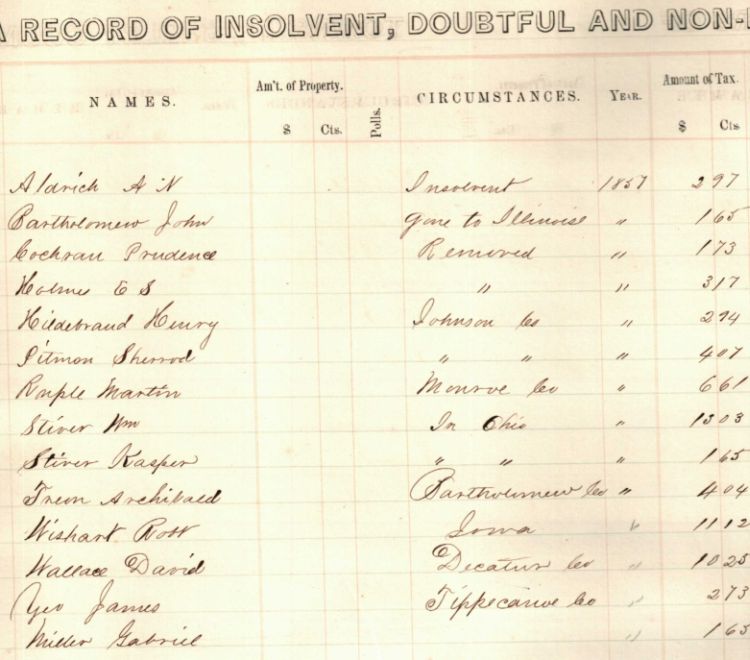 A RECORD OF INSOLVENT, DOUBTFUL AND NON-
NAMES. Am't. of Property. $ Cts. Polls. CIRCUMSTANCES. YEAR. Amount of Tax. $ Cts
Aldrich A N Insolvent 1857 2 97
Bartholomew John gone to Illinoise " 1 65
Cochran Prudence Removed " 1 73
Holmes E S " " 3 17
Hildebrand Henry Johnson Co " 2 94
Pitmon Sherrod " " " 4 07
Raple Martin Monroe Co " 6 61
Stiver Wm In Ohio " 13 03
Stiver Kasper " " " 1 65
Treon Archibald Bartholomew Co " 4 04
Wishart Robt Iowa " 11 12
Wallace David Decatur Co " 10 25
Yeo James Tippecanoe Co " 2 73
Miller Gabriel " 1 65